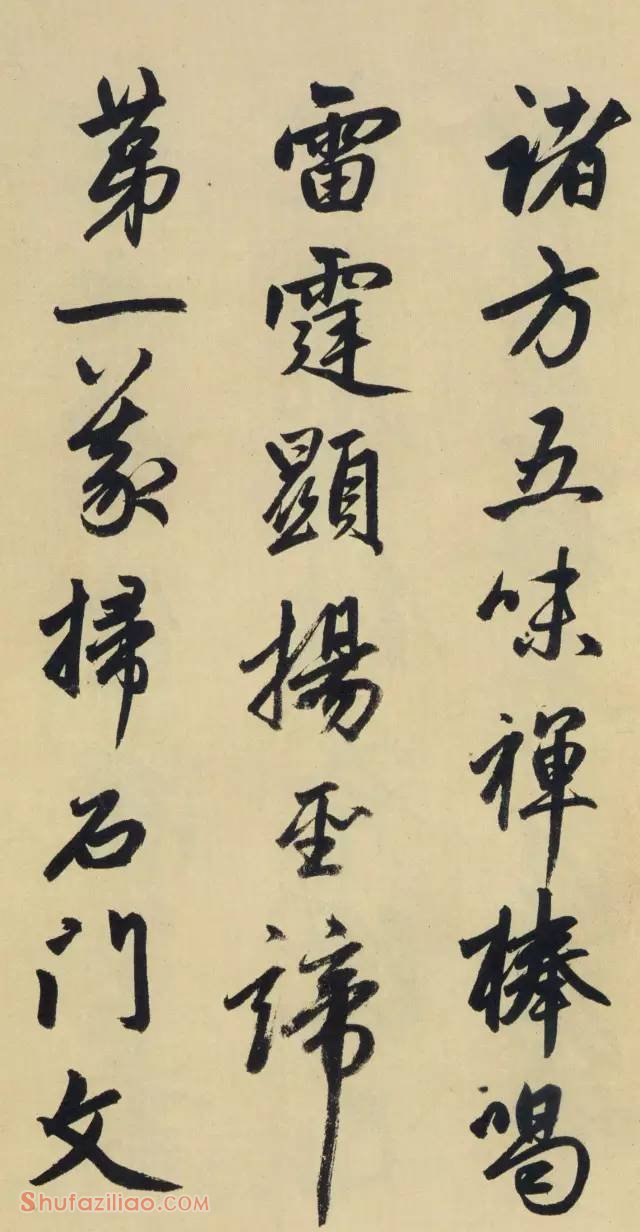 诸方五味禅棒喝
雷霆顯揚聖諦
第一義掃石門文
Shufaziliao.COM